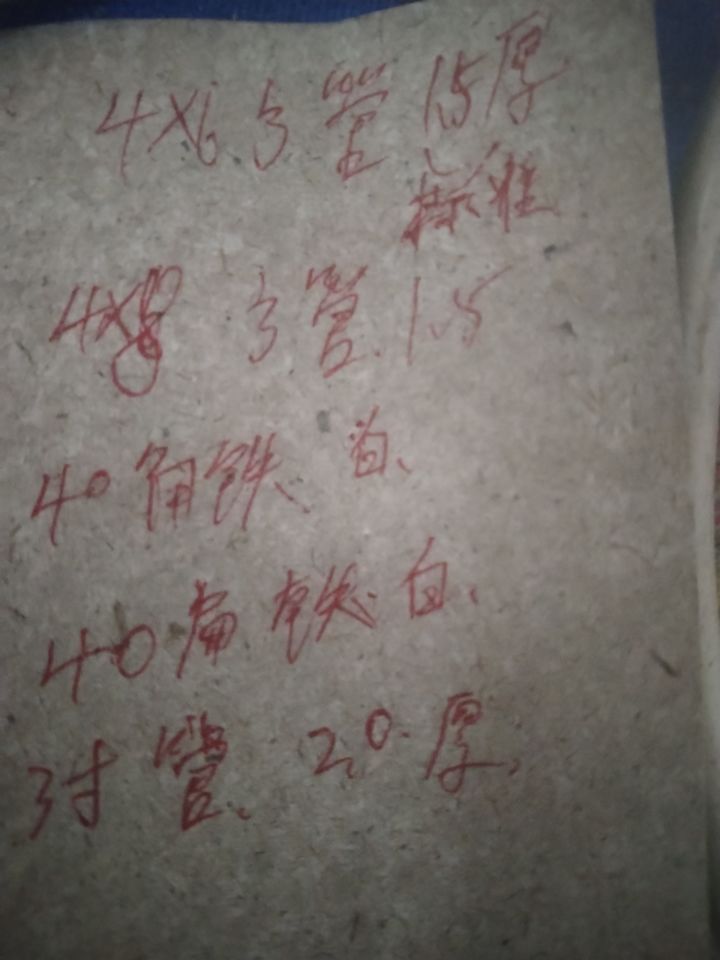 4×6方管 1.5厚
标准
4×8 方管.1.5
40角铁、白、
40扁铁.白、
3寸管、2.0.厚、